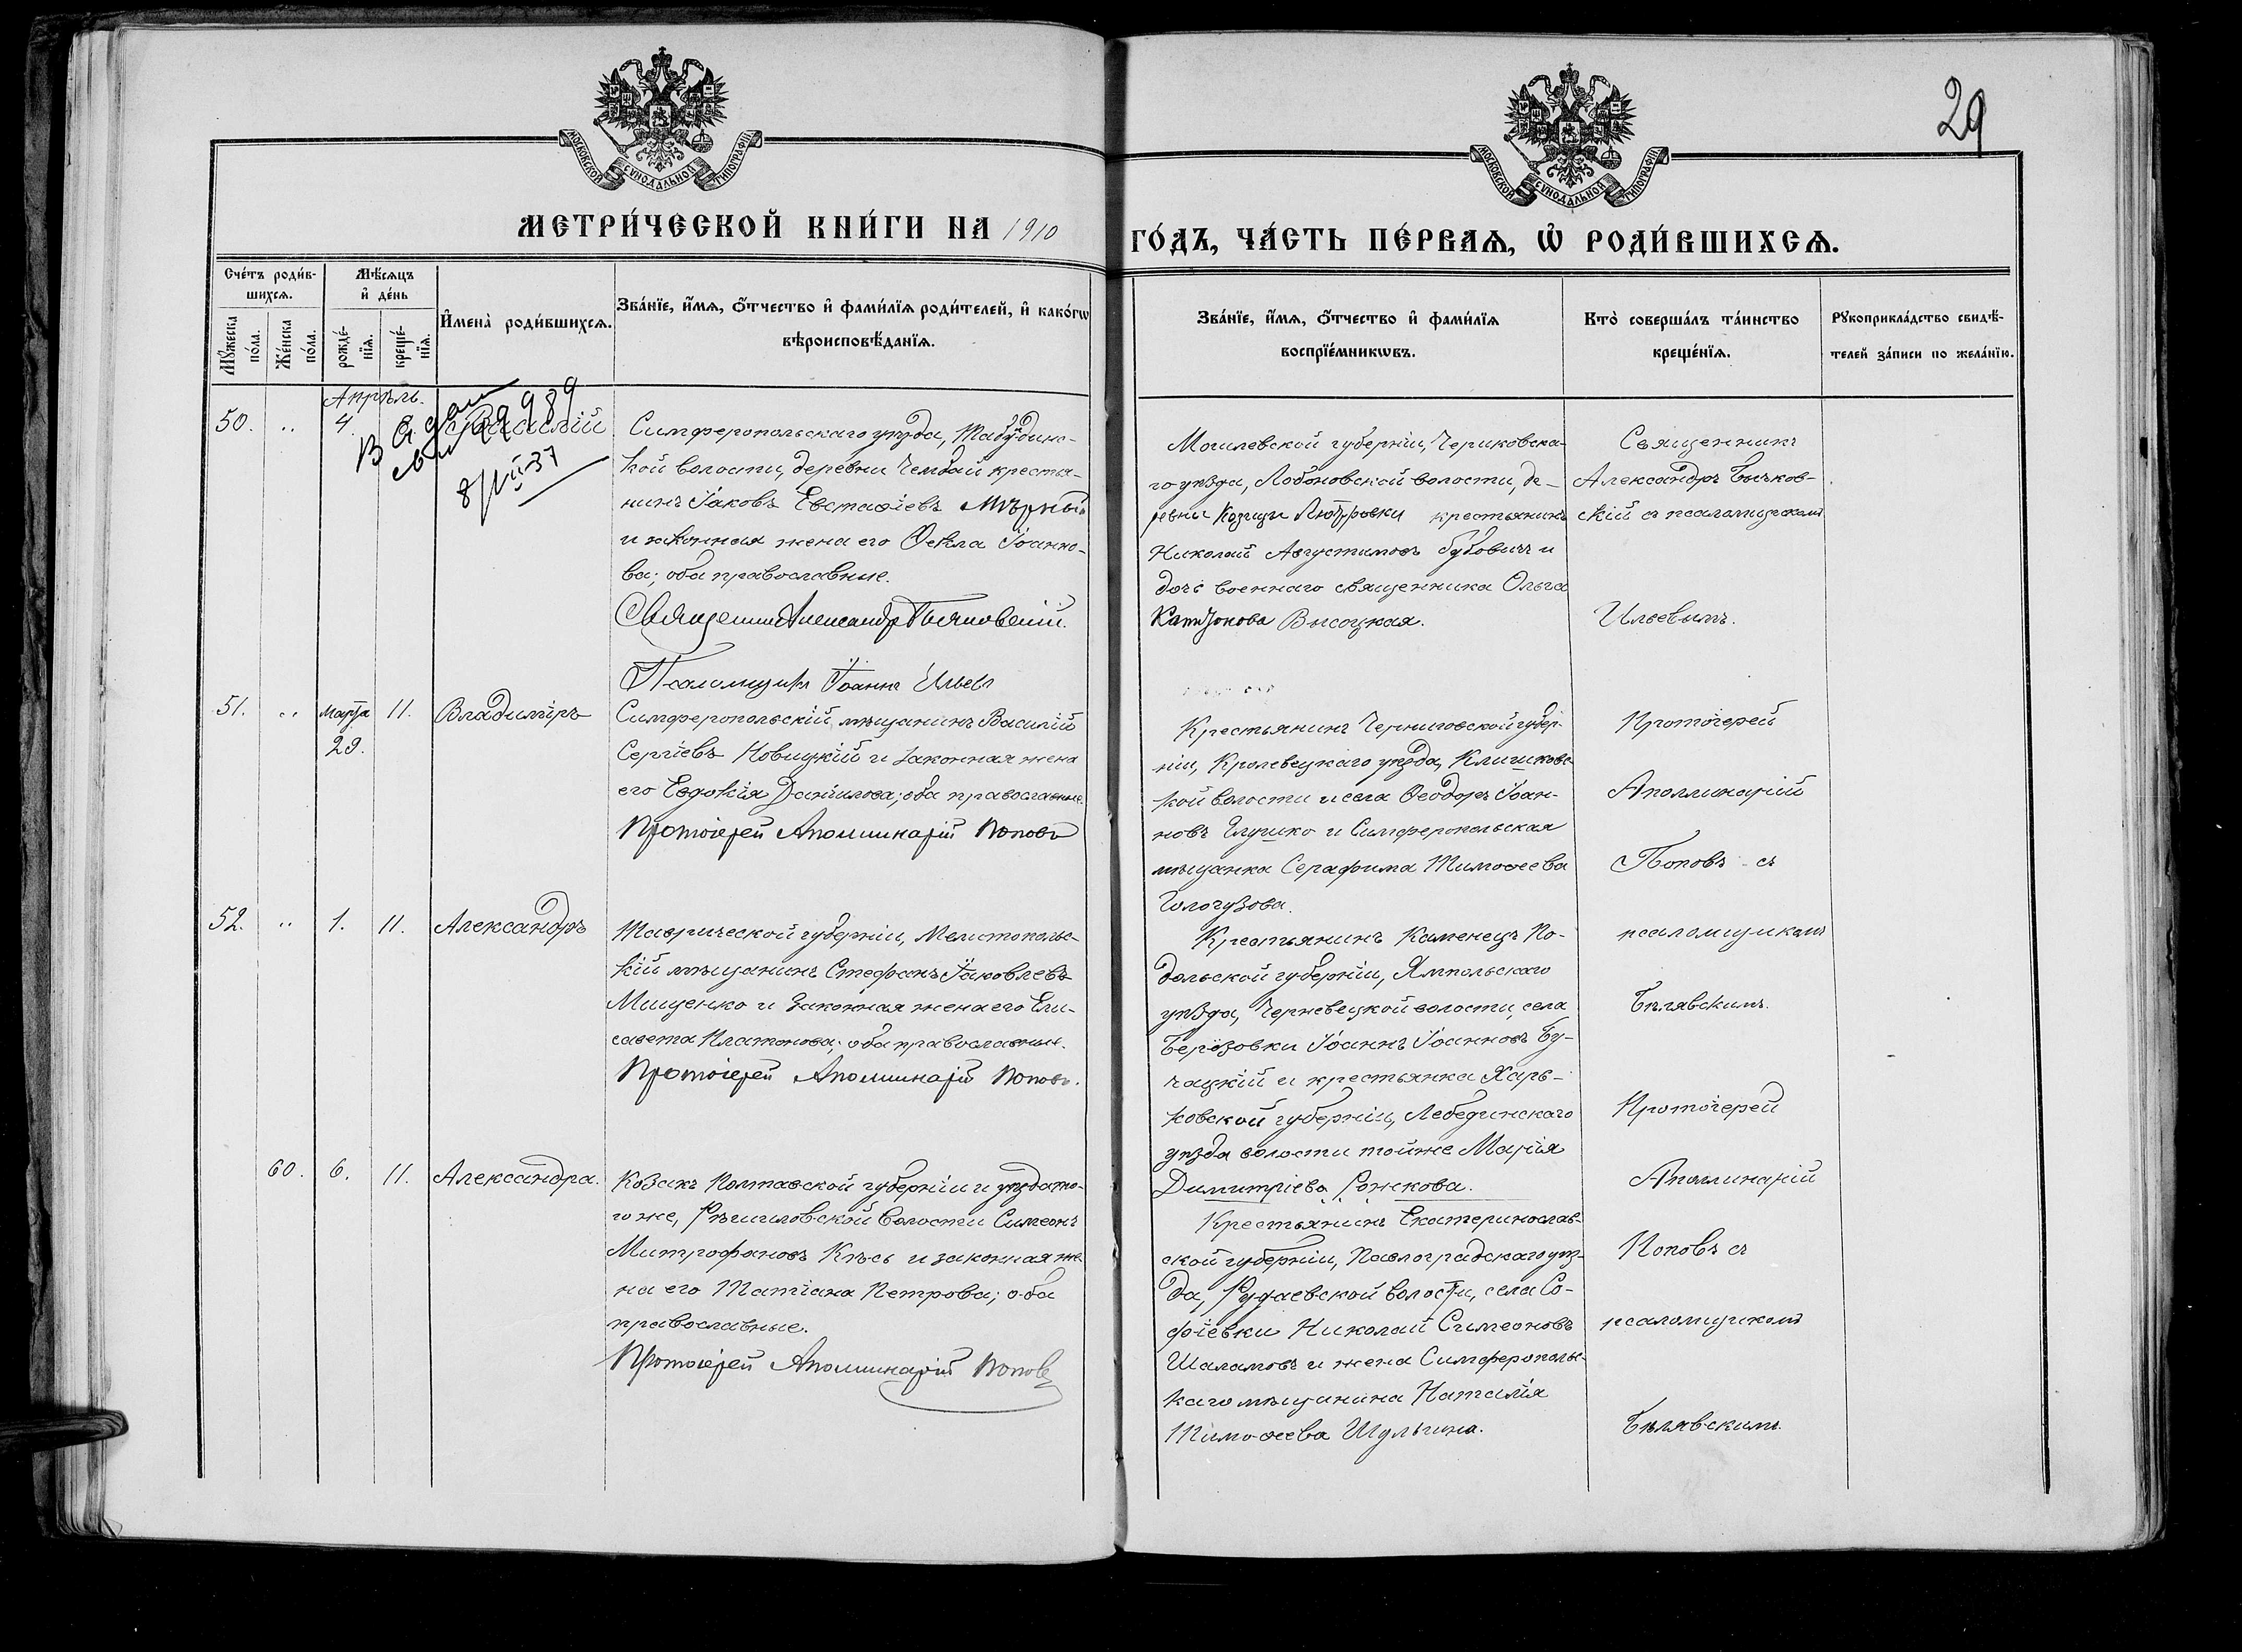 29
МОСКОВСКОЙ СУНОДАЛЬНОЙ ТИПОГРАФІИ
МОСКОВСКОЙ СУНОДАЛЬНОЙ ТИПОГРАФІИ
МЕТРИ́ЧЕСКОЙ КНИ́ГИ НА 1910
ГО́ДЪ, ЧА́СТЬ ПЕ́РВАѦ, Ѽ РОДИ́ВШИХСѦ.
Сче́тъ роди́в-
шихсѧ.
Мꙋ́жеска по́ла.
Же́нска по́ла.
Мѣ́сѧцъ
и҆ де́нь
рожде́-
нїѧ.
креще́-
нїѧ.
И҆мена̀ роди́вшихсѧ.
Зва́нїе, и҆́мѧ, ѻ҆́тчество и҆ фами́лїѧ роди́телей, и҆ како́гѡ
вѣроисповѣ́данїѧ.
Зва́нїе, и҆́мѧ, ѻ҆́тчество и҆ фами́лїѧ
воспрїе́мникѡвъ.
Кто̀ соверша́лъ та́инство
креще́нїѧ.
Рꙋкоприкла́дство свидѣ́-
телей за́писи по жела́нїю.
Апрѣль.
50. " 4. Василій
8/VII-37
Симферопольскаго уѣзда, Табулдинс-
кой волости, деревни Чембай крестья-
нинъ Іаковъ Евстаѳіевъ Мѣрный
и законная жена его Ѳекла Іоанно-
ва; оба православные.
Священникъ Александръ Бычковскій.
Псаломщикъ Іоаннъ Ильевъ
Могилевской губерніи, Чериковска-
го уѣзда, Лобановской волости, де-
ревни крестьянинъ
Николай Августимовъ Бубовичъ и
дочь военнаго священника Ольга
Высоцкая.
Священникъ
Александръ Бычков-
скій съ псаломщикомъ
Ильевымъ.
51. " Марта 11. Владиміръ
29.
Симферопольскій мѣщанинъ Василій
Сергіевъ Новицкій и законная жена
его Евдокія Даніилова; оба православные.
Протоіерей Аполлинарій Поповъ
Крестьянинъ Черниговской губер-
ніи, Кролевецкаго уѣзда, Клишковс-
кой волости и села Ѳеодоръ Іоан-
новъ Глушко и Симферопольская
мѣщанка Серафима Тимоѳеева
Гологузова.
Протоіерей
Аполлинарій
Поповъ съ
псаломщикомъ
Бѣлявскимъ.
52. " 1. 11. Александръ
Таврической губерніи, Мелитопольс-
кій мѣщанинъ Стефанъ Іаковлевъ
Мищенко и законная жена его Ели-
савета Платонова; оба православные.
Протоіерей Аполлинарій Поповъ.
Крестьянинъ Каменецъ По-
дольской губерніи, Ямпольскаго
уѣзда, Черневецкой волости, села
Березовки Іоаннъ Іоанновъ Бу-
чацкій и крестьянка Харь-
ковской губерніи, Лебединскаго
уѣзда волости тойже Марія
Димитріева Рожкова.
60. 6. 11. Александра.
Козакъ Полтавской губерніи и уѣзда то-
го же, Рѣшиловской волости Симеонъ
Митрофановъ Кѣсь и законная же-
на его Татіана Петрова; оба
православные.
Протоіерей Аполлинарій Поповъ
Крестьянинъ Екатеринослав-
ской губерніи, Павлоградскаго уѣз-
да, волости, села Со-
фіевки Николай Симеоновъ
Шаламовъ и жена Симферопольс-
каго мѣщанина Наталія
Тимоѳеева Шульгина.
Протоіерей
Аполлинарій
Поповъ съ
псаломщикомъ
Бѣлявскимъ.